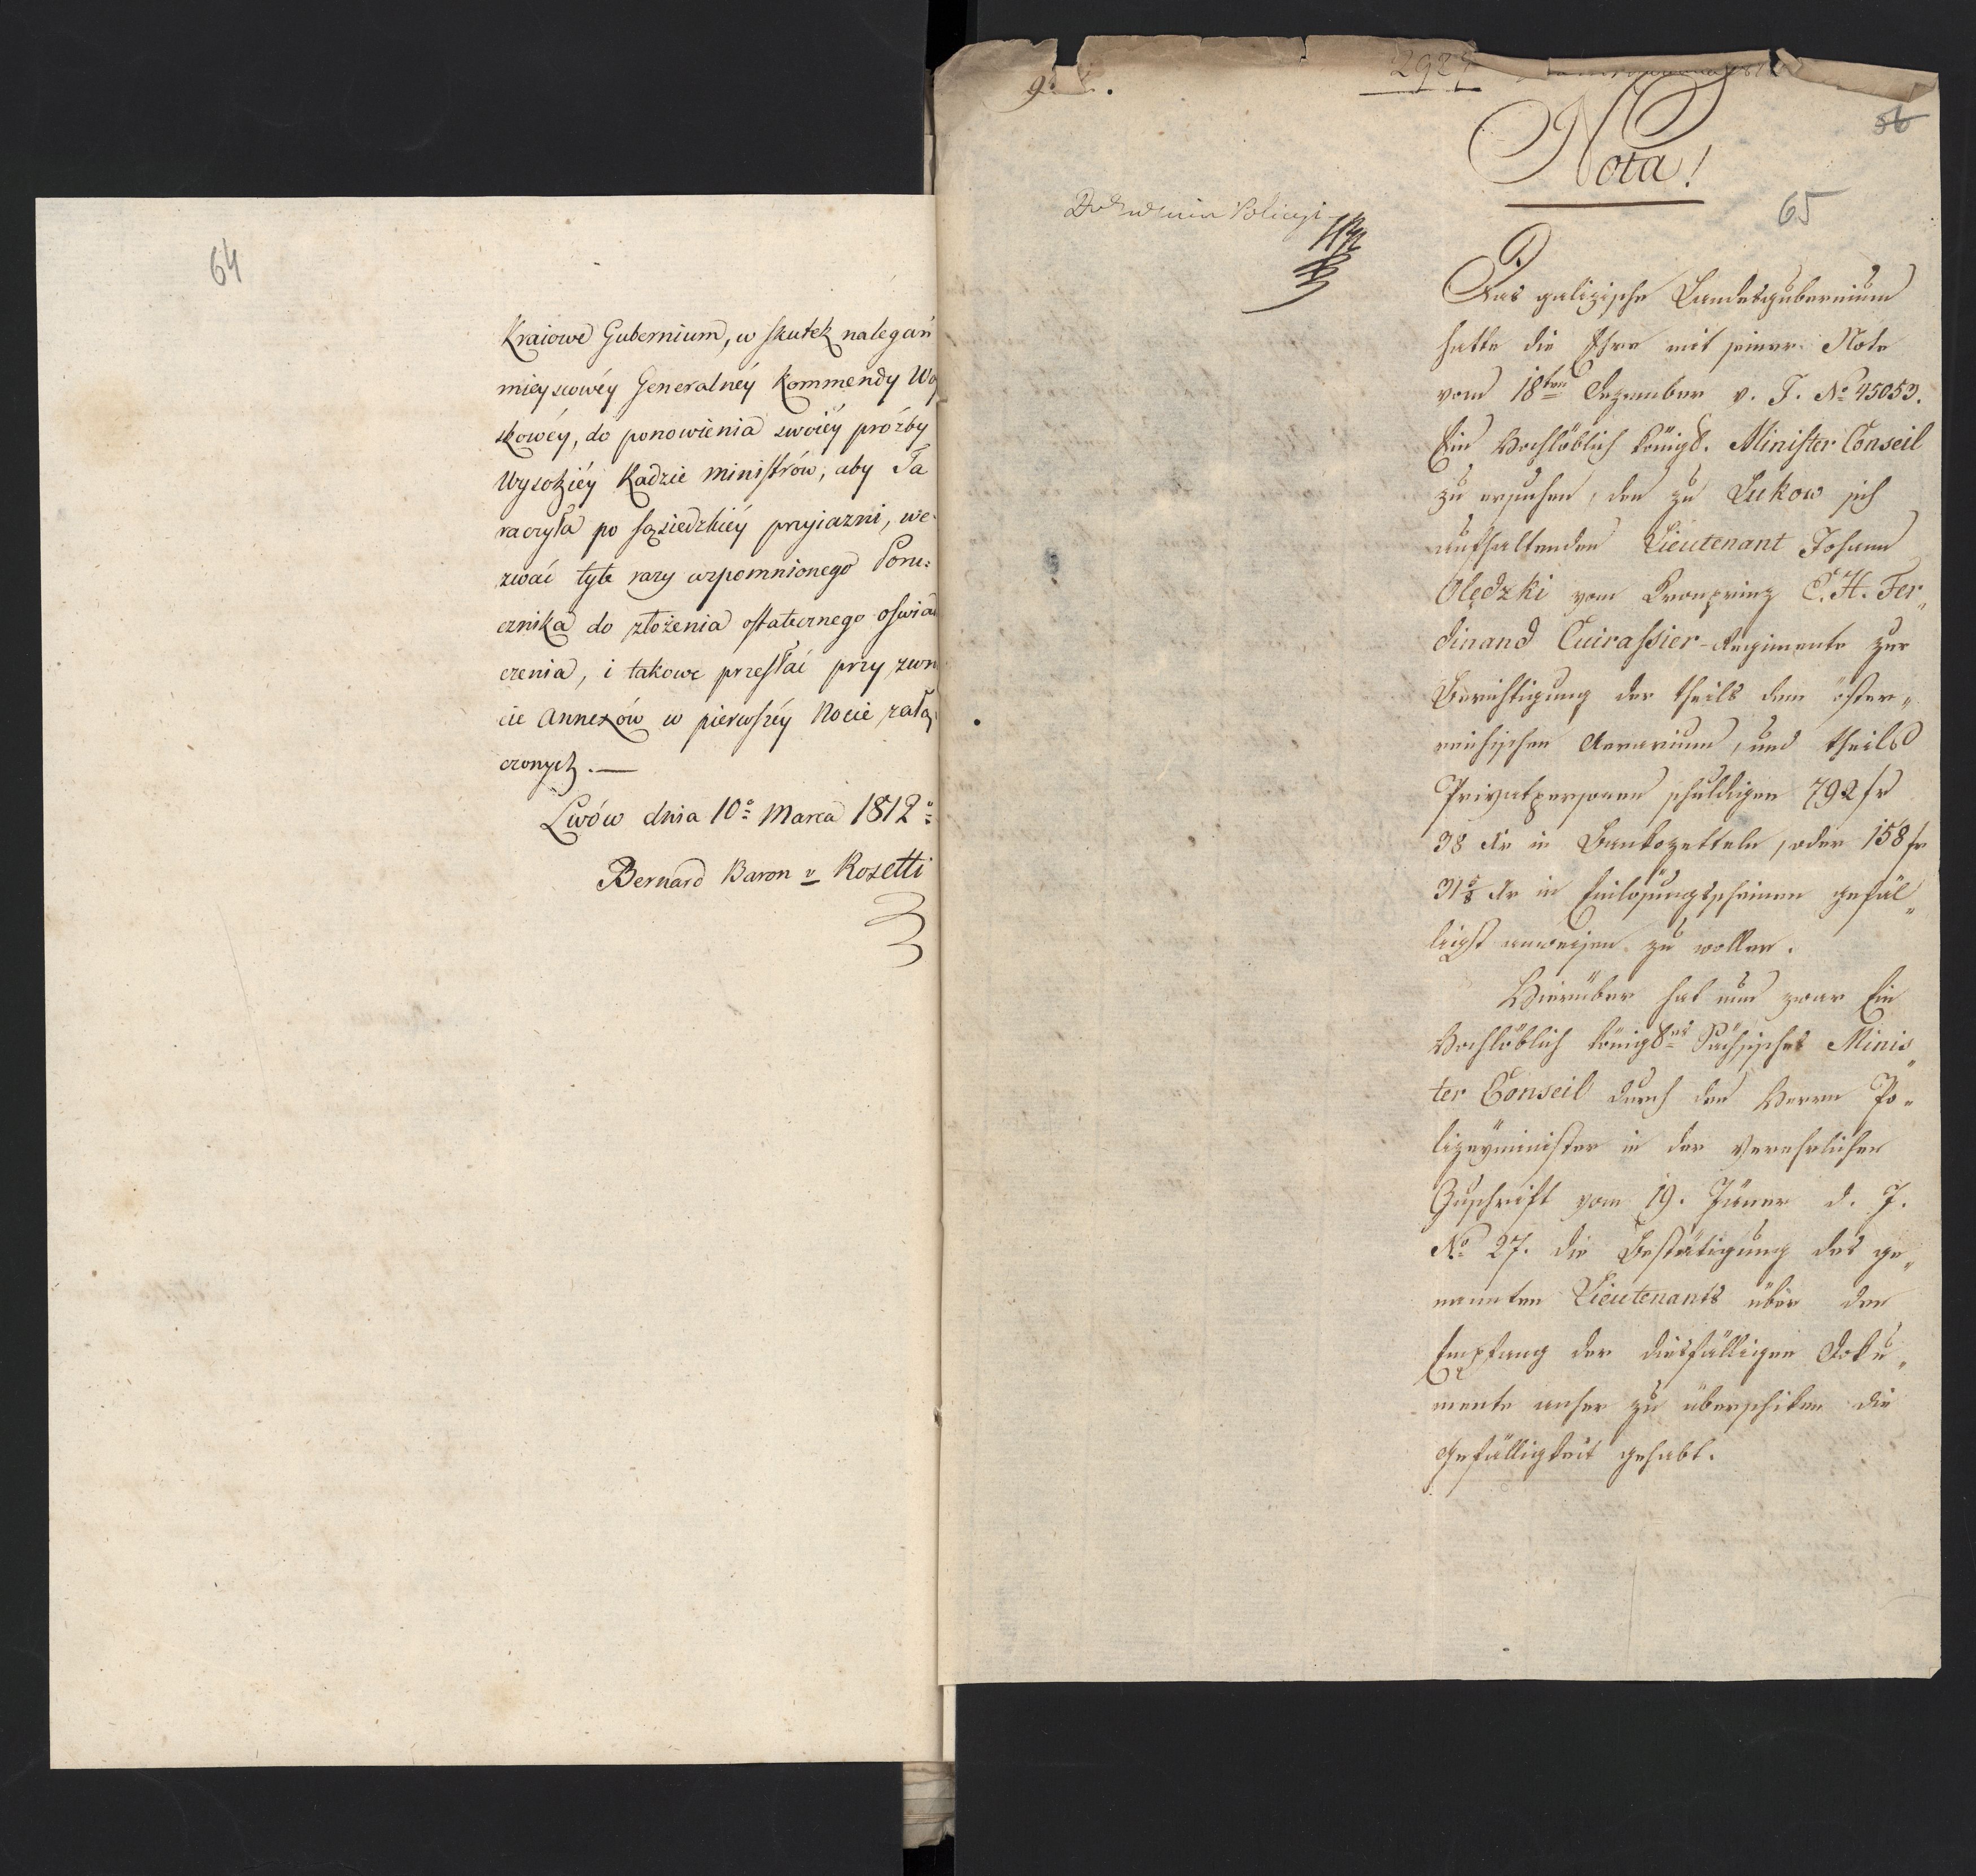 64
Kraiowe Gubernium, w skutek nalegań
mieyscowéy Generalnéy Kommendy Wo
skowéy, do ponowienia swoiéy próźby
Wysokiéy Radzie ministrów, aby Ta
raczyła po sąsiedzkiéy przyiazni, we-
zwać tyle razy wspomnionego Poru-
cznika do złożenia ostatecznego oświad
czenia, i takowe przesłać przy zwro
cie Annexów w pierwszéy Nocie załą
czonych. —
Lwów dnia 10º Marca 1812º
Bernard Baron v Rosetti
2929
Nota!
56
65
Policyi
Das galizische Landesgubernium
hatte die Ehre mit seiner Note
vom 18ten Dezember v. J. No 45053.
Ein Hochlöblich königl. Minister Conseil
zu ersuchen, den zu Lukow sich
aufhaltenden Lieutenant Johann
Olędzki vom Kronprinz E. H. Fer„
dinand Cuirassier-Regimente zur
Berichtigung der theils dem öster„
reichischen Aerarium, und theils
Privatpersonen schuldigen 792 fr
38 Xr in Bankozetteln, oder 158 fr
31 5/8 Xr in Einlösungsscheinen gefäl„
ligst anweisen zu wollen.
Hierüber hat nun zwar Ein
Hochlöblich königles Sächsisches Minis„
ter Conseil durch den Herrn Po„
lizeyminister in der verehrlichen
Zuschrift vom 19. Jäner d. J.
No 27. die Bestätigung des ge„
nannten Lieutenants über den
Empfang der diesfälligen Doku„
mente anher zu überschiken die
Gefälligkeit gehabt.